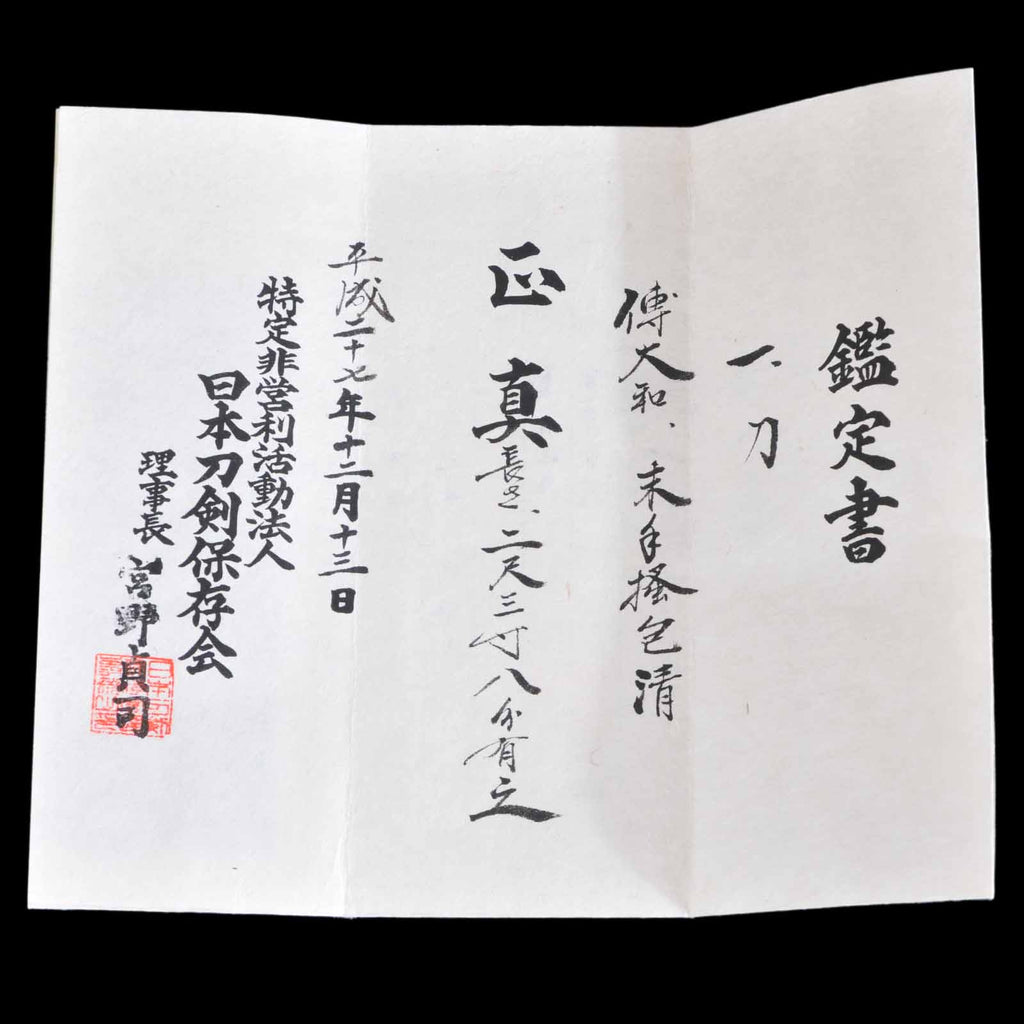 鑑定書
一、刀
傳大和、末手掻包清
正真
長さ、二尺三寸八分有之
平成二十七年十二月十三日
特定非営利活動法人
日本刀剣保存会
理事長 宮野貞司